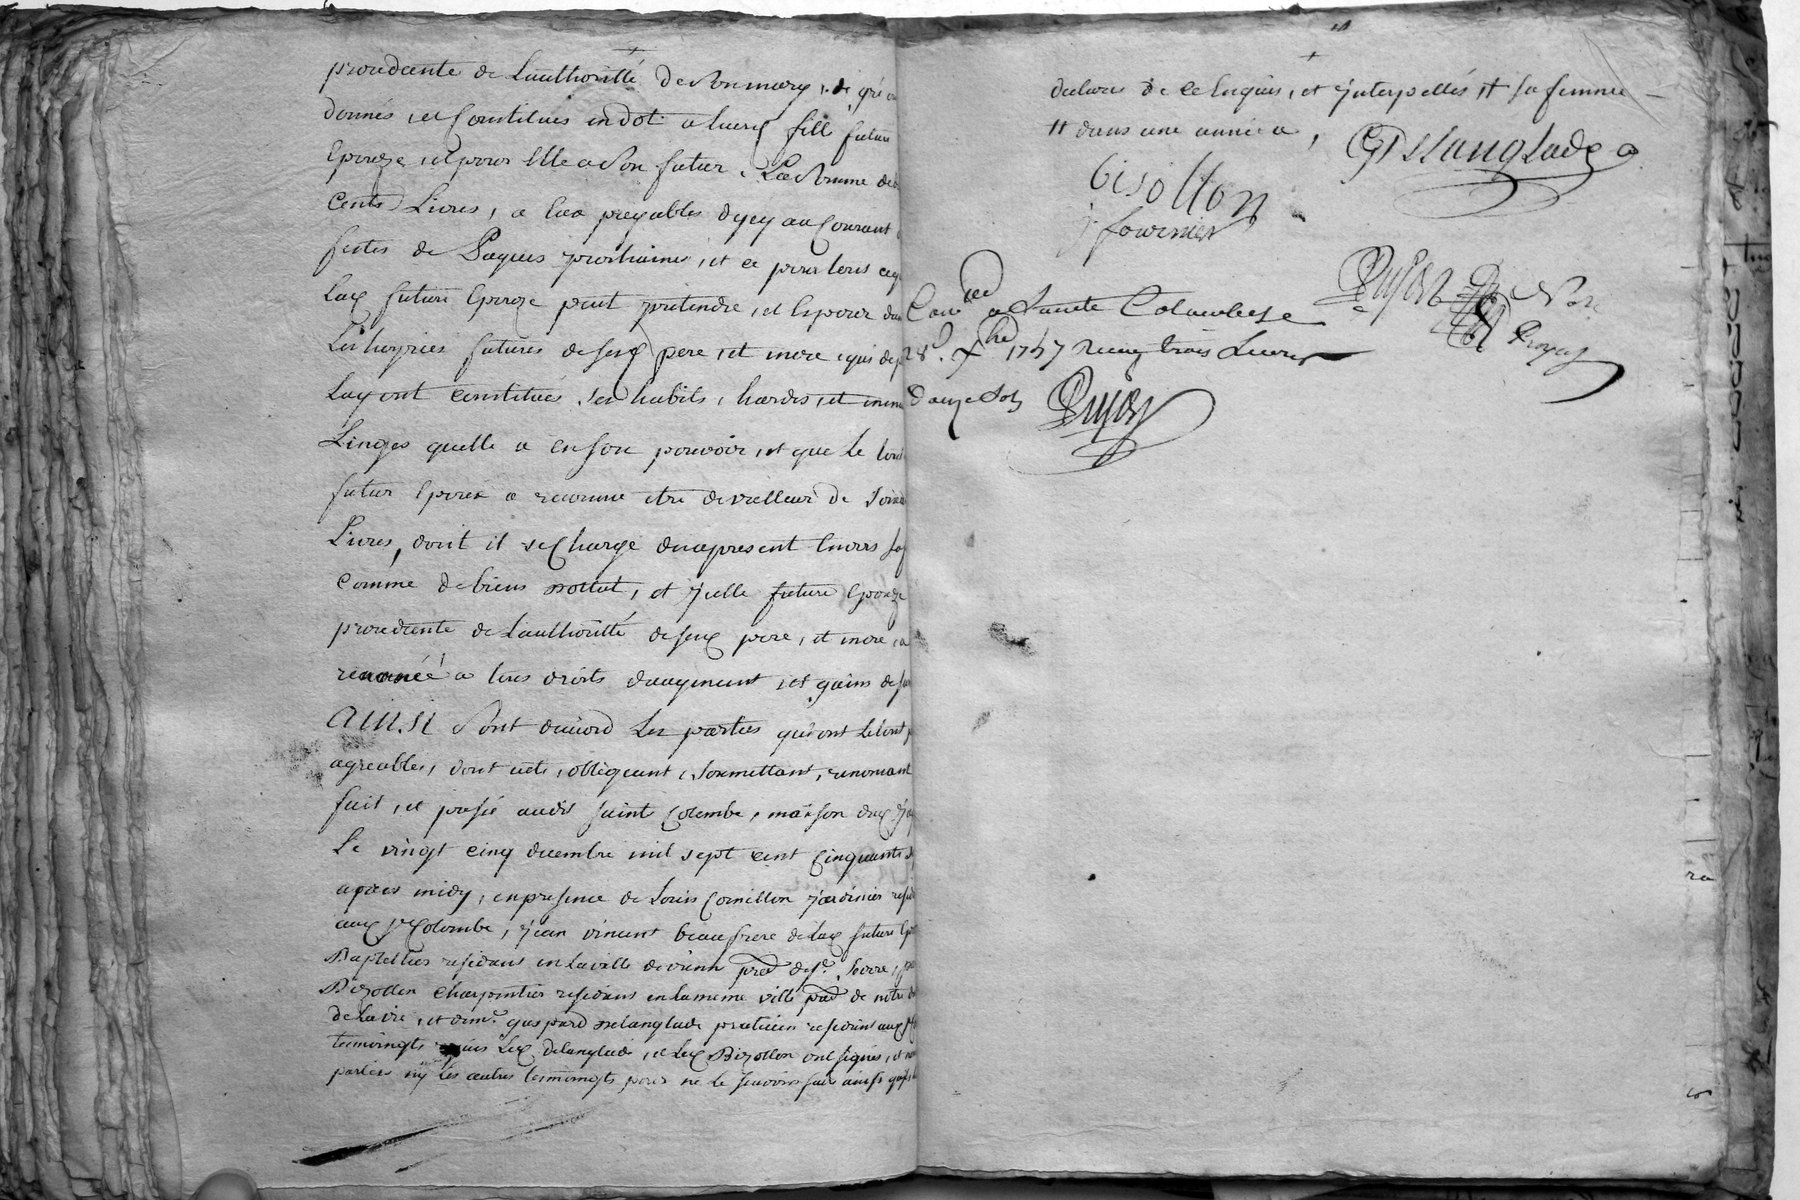 procedante de Lauthoritté de son mary, de gré
donnés, et Constitués en dot a lad fille future
Epouze, et pour Elle a son futur, La Somme de
cents Livres, a eux payables dyey au Courant
festes de Paques prochaines, et ce pour tous
Lad future Epouze peut pretendre, et Esperer
Les hoyries futures de sesd pere, et mere, qui
Luy ont constitués, ses habits, hardes, et
Linges quelle a en son pouvoir, et que le
futur Epoux a reconnu etre de valleur de
Livres, dont il se Charge dur apresent Envers
comme de biens dottal, et yelle future Epouze
procedante de Lauthoritté de sesd pere, et mere, a
renoncé a tous droits daugment, et gains de
AINSI Sont d'accord Les parties
agreables, dont acte, obligeant, soumettant, renonçant
fait, et passé audit Sainte Colombe, maison dud
Le vingt cinq decembre mil sept cent Cinquante
apres midy, en presence de Louis Cornillon jardinier
aud Ste Colombe, jean vincent beaufrere de Lad future
Baptellier residant en La ville de vienne psse de St. Severe,
Bizollon charpentier residant en La meme ville psse de notre
de La vie, et Sr gaspard delanglade praticien residant aud
temoingts Led delanglade, et Led Bizollon ont signés, et
parties ny les autres temoingts pour ne le scavoir faire ainsi quils
declaré de ce Enquis, et ynterpellés # sa femme
# dans une année
G Delanglade
bisollon
j fournier
Con.lé a Sainte Colombe Le
28e. Xbre 1757 Reçu trois Livres
douze Sols
Dujast
Dujast
Royal